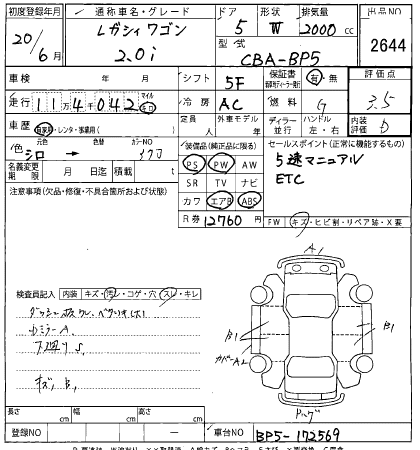 初度登録年月 通称車名・グレード ドア 形状 排気量 出品NO
20/6月 レガシィワゴン 5 W 2000cc
2.0i 型式 CBA-BP5 2644
車検 年 月 シフト 5F 保証書 有・無 評価点
走行 114千042 マイル キロ 冷房 AC 燃料 G 3.5
車歴 自家用・レンタ・事業用( ) 定員 人 外車モデル 年 ディーラー 並行 ハンドル 左・右 内装評価 D
元色 カラーNO 装備品(純正品に限る) セールスポイント(正常に機能するもの)
色 シロ → 替 37J PS PW AW 5速マニュアル
名義変更期限 月 日迄 積載 t SR TV ナビ ETC
注意事項(欠品・修復・不具合箇所および状態) カワ エアB ABS
R券 12760円 FW キズ・ヒビ割・リペア跡・X要
A
検査員記入 内装 キズ・汚レ・コゲ・穴 スレ・キレ
B1 B1
ドアミラーA
カバーA2
キズ、B、
長さ cm 幅 cm 高さ cm
登録NO ー 車台NO BP5-172569